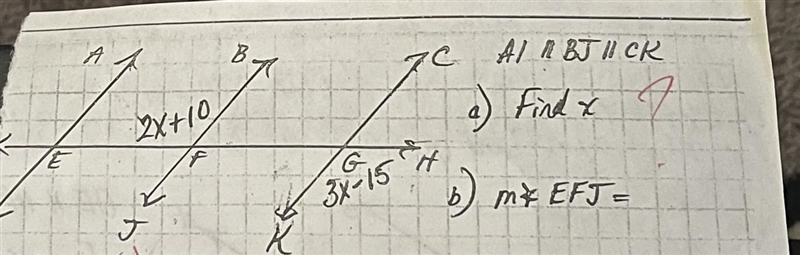 A B C AI || BJ || CK
2x+10 a) Find x ?
E F G H
3x-15 b) m∡ EFJ =
J K